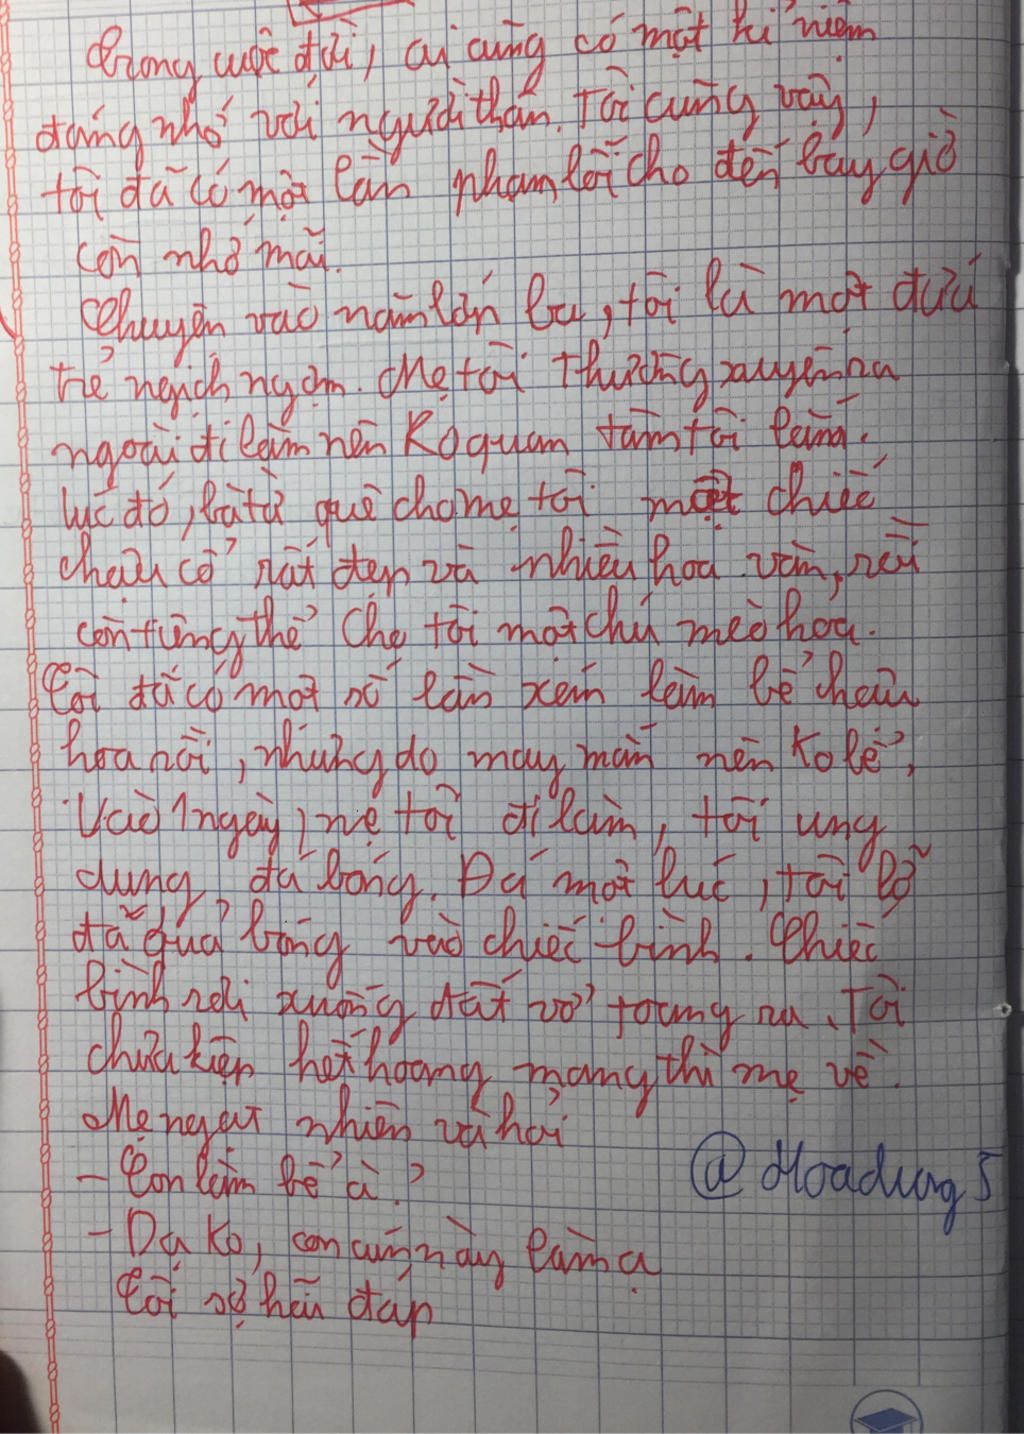 Trong cuộc đời, ai cũng có một kỉ niệm
đáng nhớ với người thân. Tôi cũng vậy,
tôi đã có một lần phạm lỗi cho đến bây giờ
còn nhớ mãi.
Chuyện vào năm lớp ba, tôi là một đứa
trẻ nghịch ngợm. Mẹ tôi thường xuyên ra
ngoài đi làm nên ko quan tâm tôi lắm.
Lúc đó, bà từ quê cho mẹ tôi một chiếc
chậu cổ rất đẹp và nhiều hoa văn, rồi
còn từng thể cho tôi một chú mèo hoa.
Tôi đã có một số lần xém làm bể chậu
hoa rồi, nhưng do may mắn nên ko bể,
Vào 1 ngày, mẹ tôi đi làm, tôi ung
dung đá bóng. Đá một lúc, tôi lỡ
đá quả bóng vào chiếc bình. Chiếc
bình rơi xuống đất vỡ toang ra. Tôi
chưa kịp hết hoang mang thì mẹ về.
Mẹ ngạt nhiên và hỏi
- Con làm bể à?
- Dạ ko, con mèo này làm ạ
Tôi sợ hãi đáp
@Hoadung5